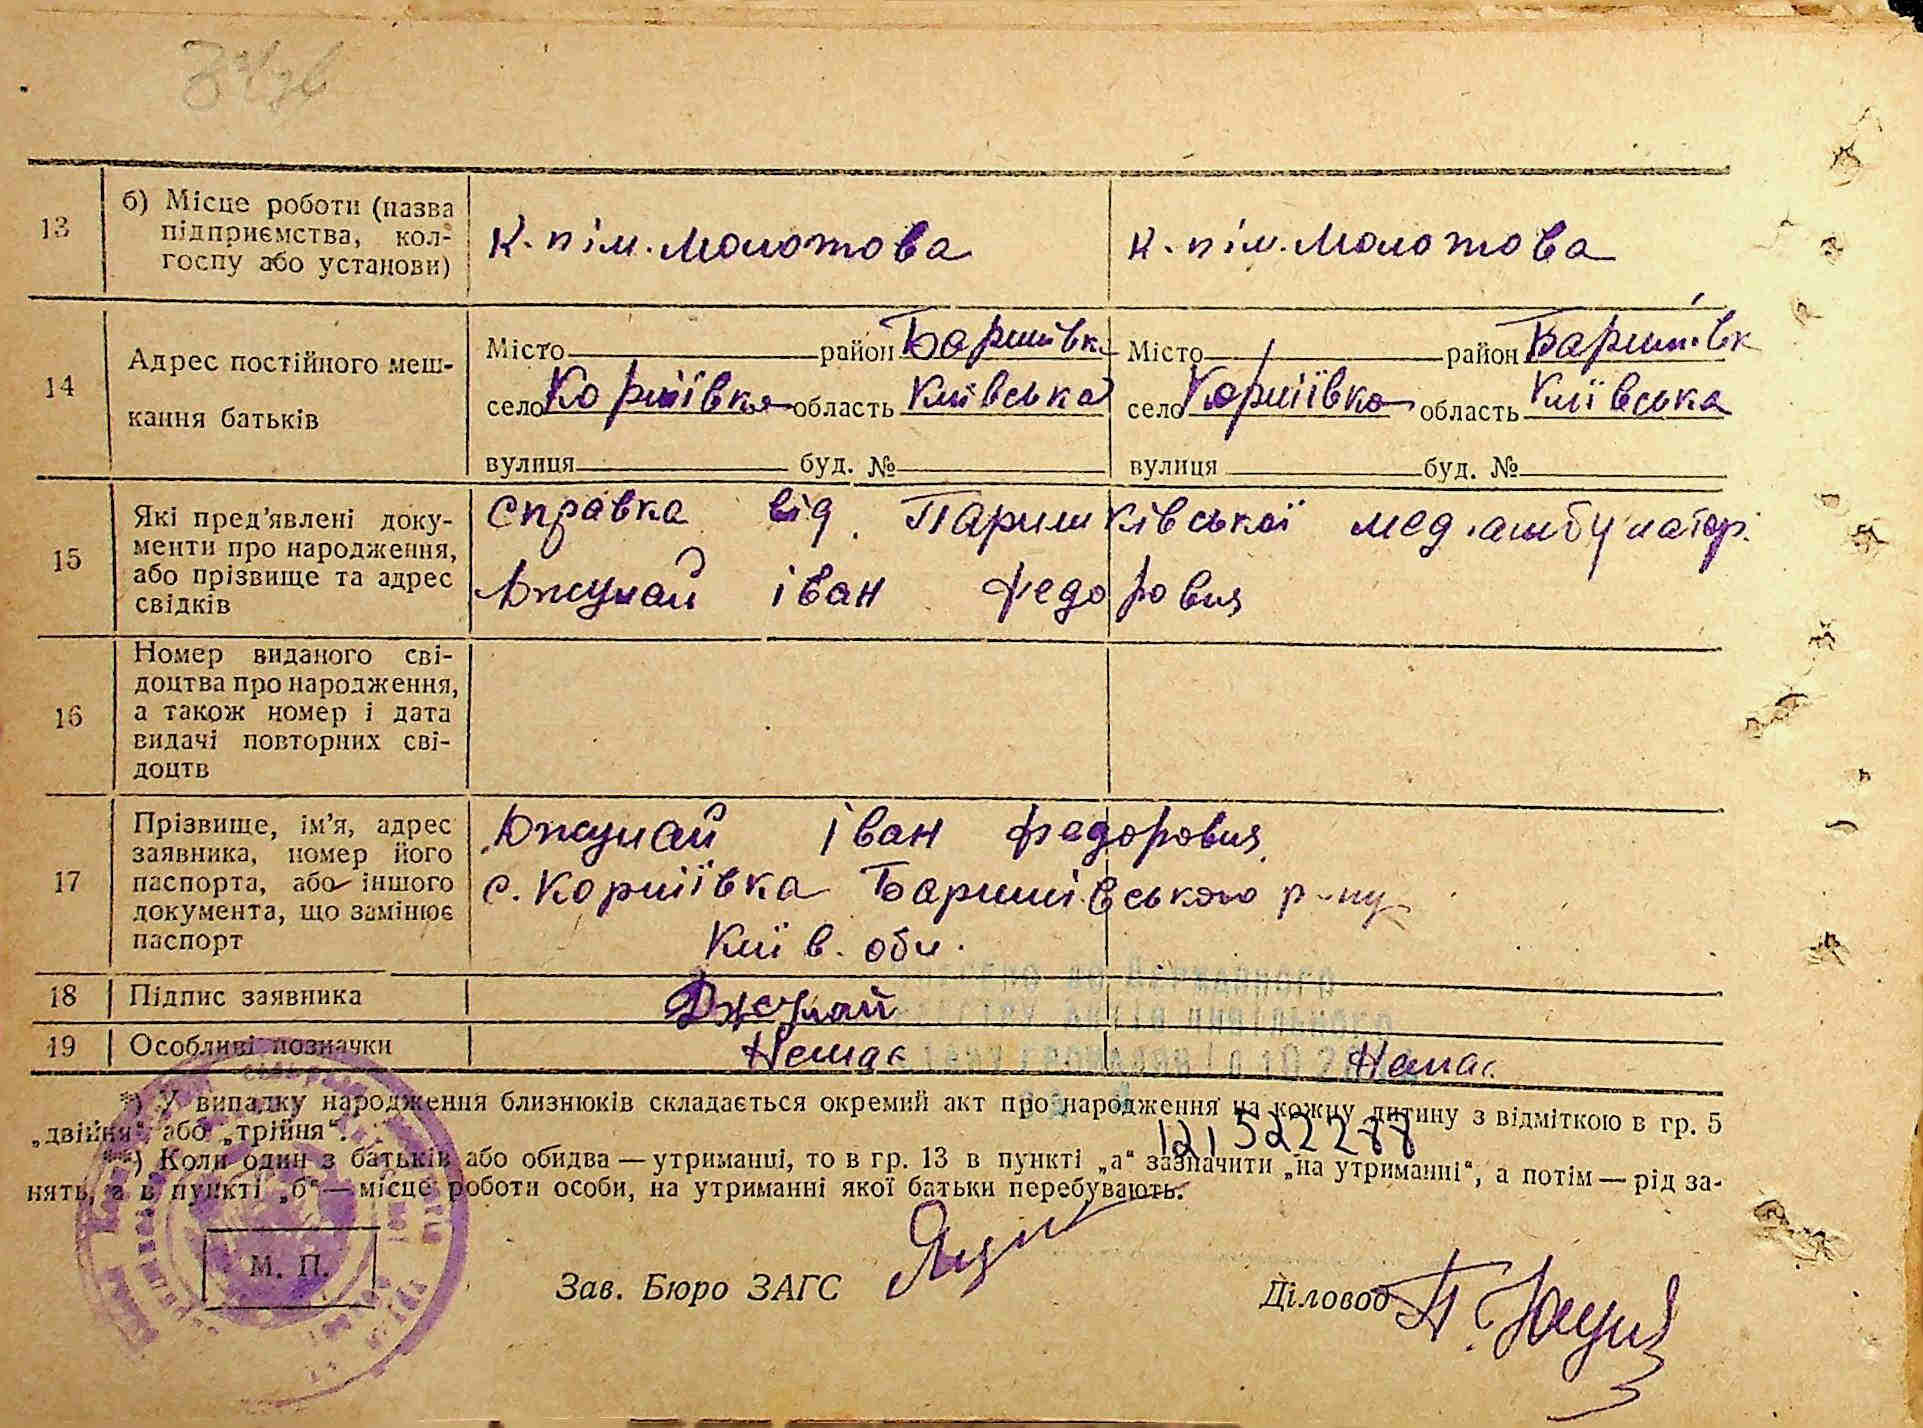 13
б) Місце роботи (назва
підприємства, кол-
госпу або установи)
к-п ім. Молотова
к-п ім. Молотова
14
Адрес постійного меш-
кання батьків
Місто район Баришівк
село Коржіївка область Київська
вулиця буд. №
Місто район Баришівк
село Коржіївка область Київська
вулиця буд. №
15
Які пред’явлені доку-
менти про народження,
або прізвище та адрес
свідків
Справка від Паришківської мед. амбулатор.
Джулай Іван Федорович
16
Номер виданого сві-
доцтва про народження,
а також номер і дата
видачі повторних сві-
доцтв
17
Прізвище, ім’я, адрес
заявника, номер його
паспорта, або іншого
документа, що замінює
паспорт
Джулай Іван Федорович
с. Коржіївка Баришівського р-ну
Київ. обл.
18
Підпис заявника
Джулай
19
Особливі позначки
Немає
Немає
*) У випадку народження близнюків складається окремий акт про народження на кожну дитину з відміткою в гр. 5
„двійня“ або „трійня“.
**) Коли один з батьків або обидва — утриманці, то в гр. 13 в пункті „а“ зазначити „на утриманні“, а потім — рід за-
нять, а в пункті „б“ — місце роботи особи, на утриманні якої батьки перебувають.
М. П.
Зав. Бюро ЗАГС
Діловод